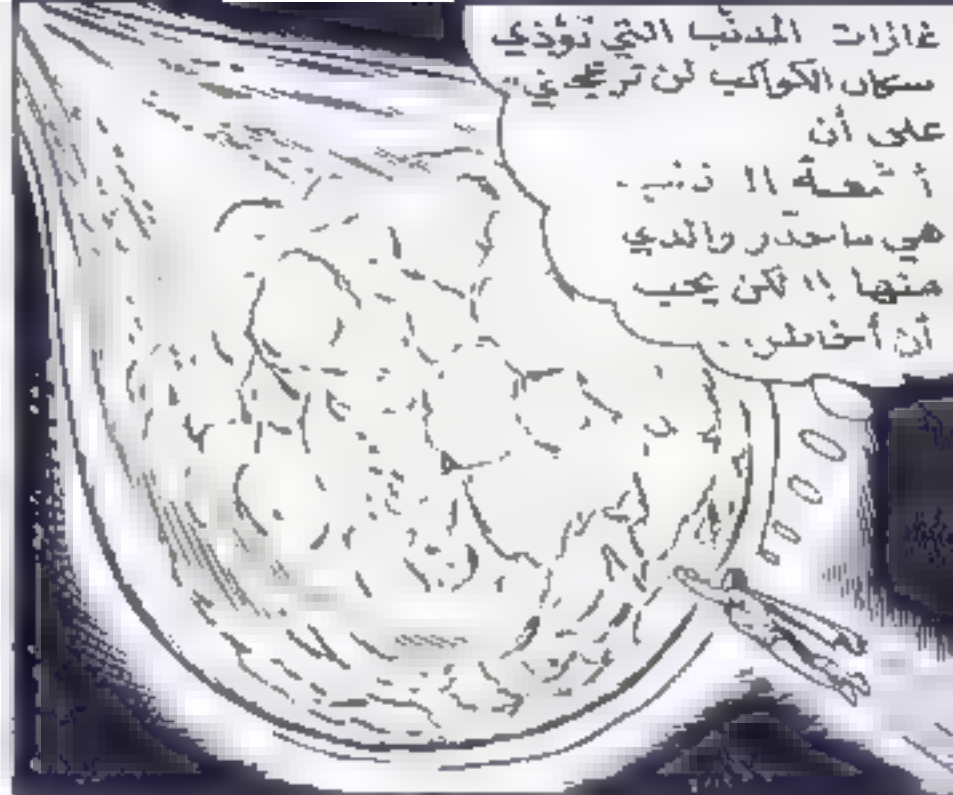 غازات المذنب التي تؤذي
سكان الكواكب لن تزعجني
على أن
أشعة الذنب
هي ما حذر والدي
منها !! لكن يجب
أن أخاطر..